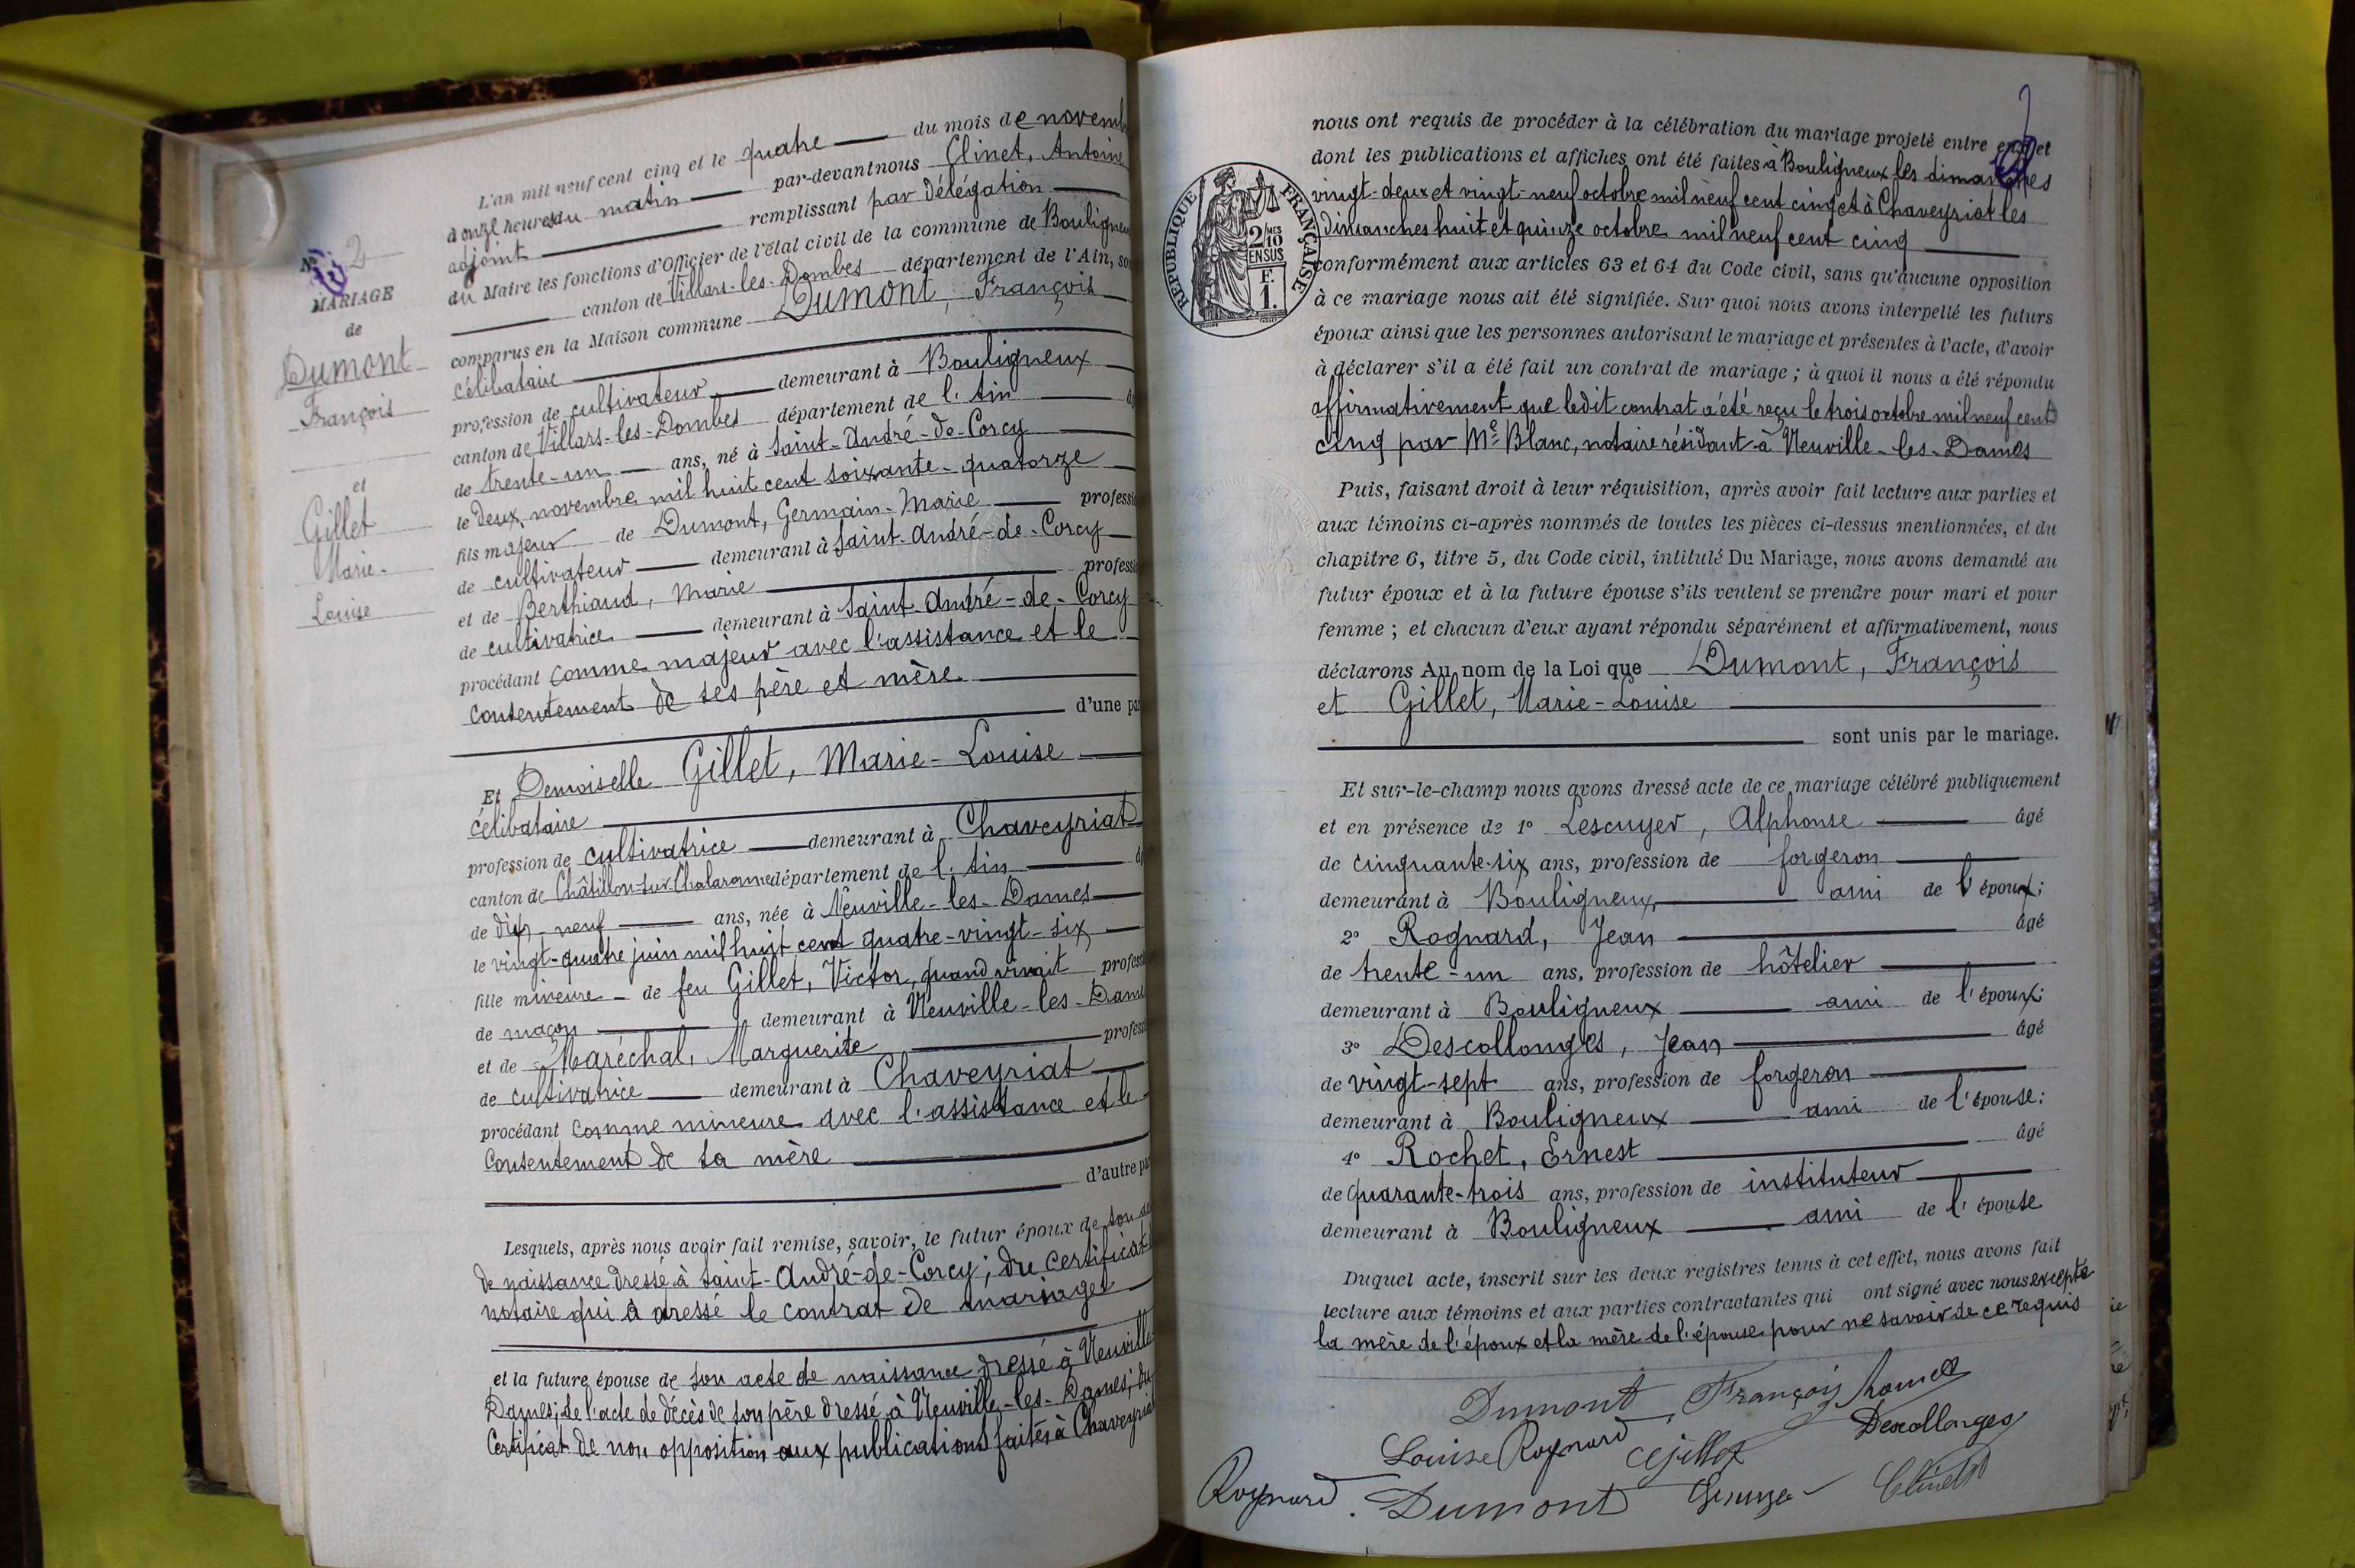 L'an mil neuf cent cinq et le quatre du mois de novemb
à onze heures du matin par-devant nous Clinet, Antoine
adjoint remplissant par délégation
du Maire les fonctions d'Officier de l'état civil de la commune de Bouligneu
canton de Villars-les-Dombes département de l'Ain, so
comparus en la Maison commune Dumont, François
célibataire
profession de cultivateur demeurant à Bouligneux
canton de Villars-les-Dombes département de l'Ain
de trente-un ans, né à Saint-André-de-Corcy
le deux novembre mil huit cent soixante-quatorze
fils majeur de Dumont, Germain-Marie professi
de cultivateur demeurant à Saint-André-de-Corcy
et de Berthiaud, Marie professi
de cultivatrice demeurant à Saint-André-de-Corcy
procédant comme majeur avec l'assistance et le
consentement de ses père et mère.
d'une pa
Et Demoiselle Gillet, Marie-Louise
célibataire
profession de cultivatrice demeurant à Chaveyriat
canton de Châtillon-sur-Chalaronne département de l'Ain
de dix-neuf ans, née à Neuville-les-Dames
le vingt-quatre juin mil huit cent quatre-vingt-six
fille mineure de feu Gillet, Victor, quand vivait profess
de maçon demeurant à Neuville-les-Dame
et de Maréchal, Marguerite profess
de cultivatrice demeurant à Chaveyriat
procédant comme mineure avec l'assistance et le
consentement de sa mère
d'autre pa
Lesquels, après nous avoir fait remise, savoir, le futur époux de son
de naissance dressé à Saint-André-de-Corcy; du certificat
notaire qui a dressé le contrat de mariage
et la future épouse de son acte de naissance dressé à Neuville
Dames; de l'acte de décès de son père dressé à Neuville-les-Dames; du
certificat de non opposition aux publications faites à Chaveyriat
N° 2
MARIAGE
de
Dumont
François
et
Gillet
Marie-
Louise
nous ont requis de procéder à la célébration du mariage projeté entre eux et
dont les publications et affiches ont été faites à Bouligneux les dimanches
vingt-deux et vingt-neuf octobre mil neuf cent cinq et à Chaveyriat les
dimanches huit et quinze octobre mil neuf cent cinq
conformément aux articles 63 et 64 du Code civil, sans qu'aucune opposition
à ce mariage nous ait été signifiée. Sur quoi nous avons interpellé les futurs
époux ainsi que les personnes autorisant le mariage et présentes à l'acte, d'avoir
à déclarer s'il a été fait un contrat de mariage; à quoi il nous a été répondu
affirmativement que ledit contrat a été reçu le trois octobre mil neuf cent
cinq par Me Blanc, notaire résidant à Neuville-les-Dames
Puis, faisant droit à leur réquisition, après avoir fait lecture aux parties et
aux témoins ci-après nommés de toutes les pièces ci-dessus mentionnées, et du
chapitre 6, titre 5, du Code civil, intitulé Du Mariage, nous avons demandé au
futur époux et à la future épouse s'ils veulent se prendre pour mari et pour
femme; et chacun d'eux ayant répondu séparément et affirmativement, nous
déclarons Au nom de la Loi que Dumont, François
et Gillet, Marie-Louise
sont unis par le mariage.
Et sur-le-champ nous avons dressé acte de ce mariage célébré publiquement
et en présence de 1° Lescuyer, Alphonse âgé
de cinquante-six ans, profession de forgeron
demeurant à Bouligneux ami de l'époux;
2° Rognard, Jean âgé
de trente-un ans, profession de hôtelier
demeurant à Bouligneux ami de l'époux;
3° Descollonges, Jean âgé
de vingt-sept ans, profession de forgeron
demeurant à Bouligneux ami de l'épouse;
4° Rochet, Ernest âgé
de quarante-trois ans, profession de instituteur
demeurant à Bouligneux ami de l'épouse
Duquel acte, inscrit sur les deux registres tenus à cet effet, nous avons fait
lecture aux témoins et aux parties contractantes qui ont signé avec nous excepté
la mère de l'époux et la mère de l'épouse pour ne savoir de ce requis
Dumont François
Louise Roynard Gillet Descollonges
Roynard. Dumont Clinet
RÉPUBLIQUE FRANÇAISE
2/10 MES
EN SUS
F.
1.